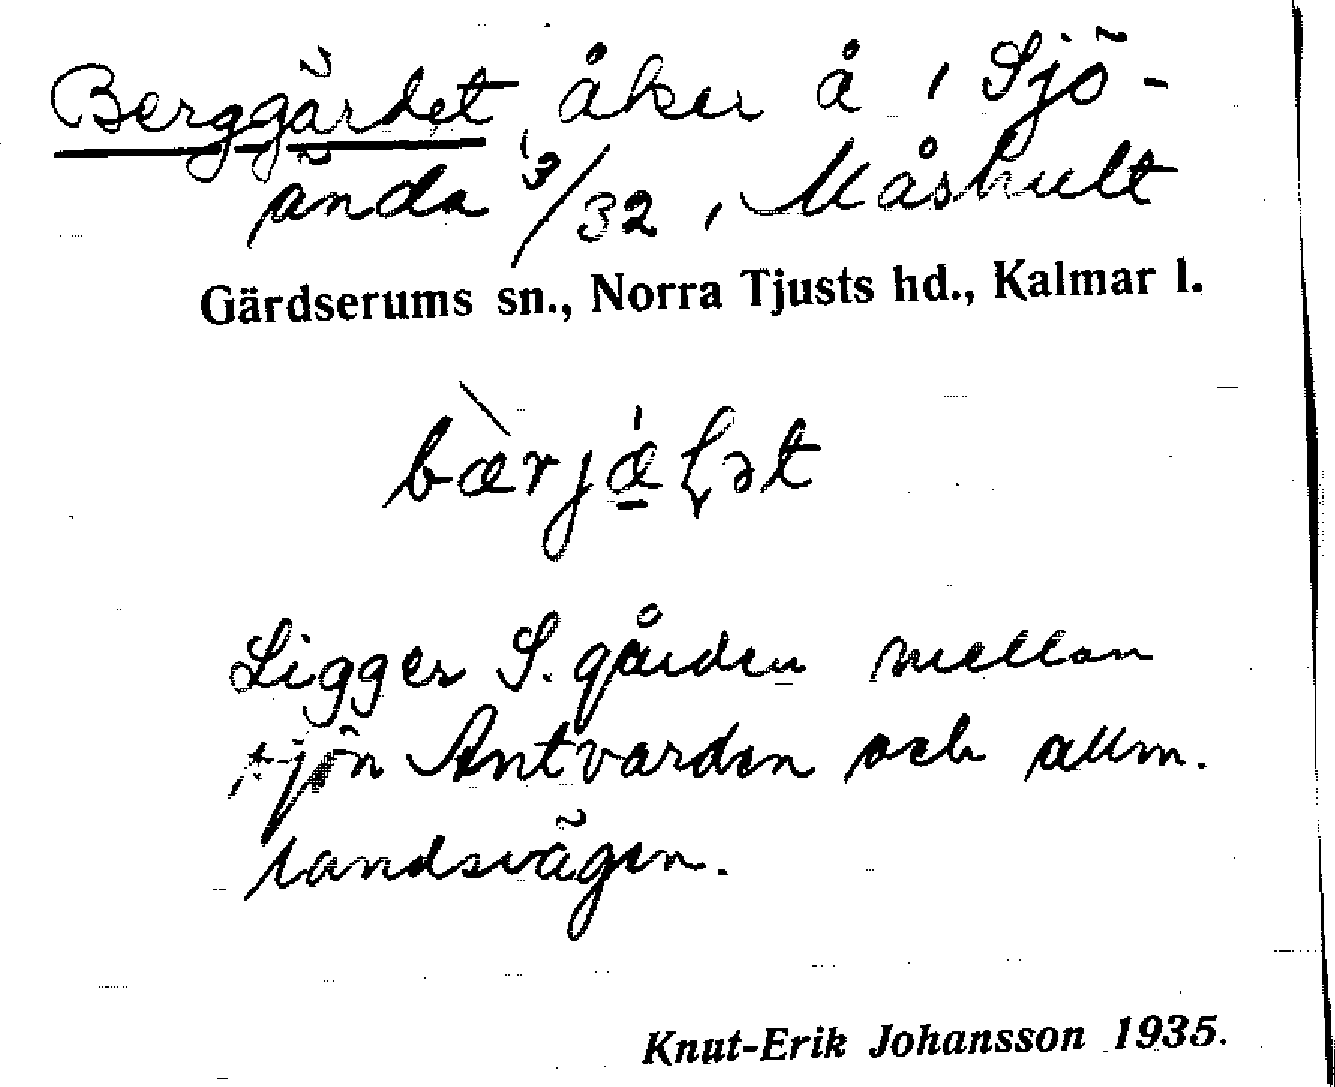 Berggärdet, åker å 1 Sjö-
ända 3/32, Måshult
Gärdserums sn., Norra Tjusts hd., Kalmar l.
bæ̀rjǽɽət
Ligger S. gården mellan
sjön Antvarden och allm.
landsvägen.
Knut-Erik Johansson 1935.